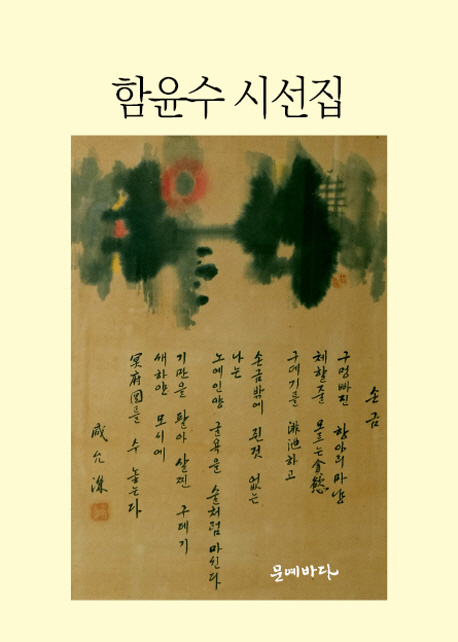 함윤수 시선집
손금
구멍빠진 항아리마냥
체할줄 모르는 貪慾
구데기를 游泄하고
손금밖에 쥔것 없는
나는
노예인양 굴욕을 술처럼 마신다
기만을 팔아 살찐 구데기
새하얀 모시에
冥府図를 수 놓는다
咸允洙
문예바다